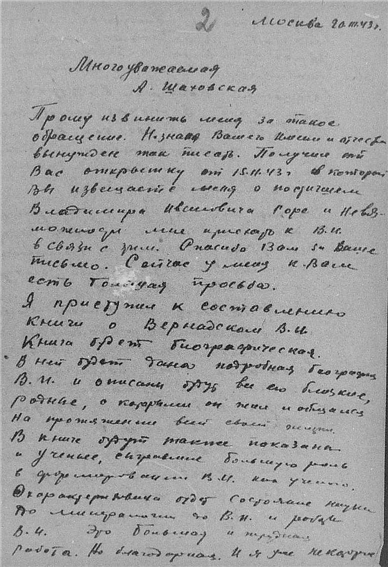 2
Москва 20.III.43 г.
Многоуважаемая
А. Шаховская
Прошу извинить меня за такое
обращение. Не зная Вашего имени и отчества
вынужден так писать. Получил от
Вас открытку от 15.II.43 г в которой
Вы извещаете меня о постигшем
Владимира Ивановича горе и невоз-
можности мне приехать к В.И.
в связи с этим. Спасибо Вам за Ваше
письмо. Сейчас у меня к Вам
есть большая просьба.
Я приступил к составлению
книги о Вернадском В.И.
Книга будет биографическая.
В ней будет дана подробная биография
В.И. и описаны будут все его близкие,
родные, с которыми он жил и общался
на протяжении всей своей жизни.
В книге будут также показаны
и ученые, сыгравшие большую роль
в формировании В.И. как ученого.
Охарактеризовано будет состояние науки
до В.И. и
В.И. Это большая и трудная
работа. Но благодарная. И я уже некоторые